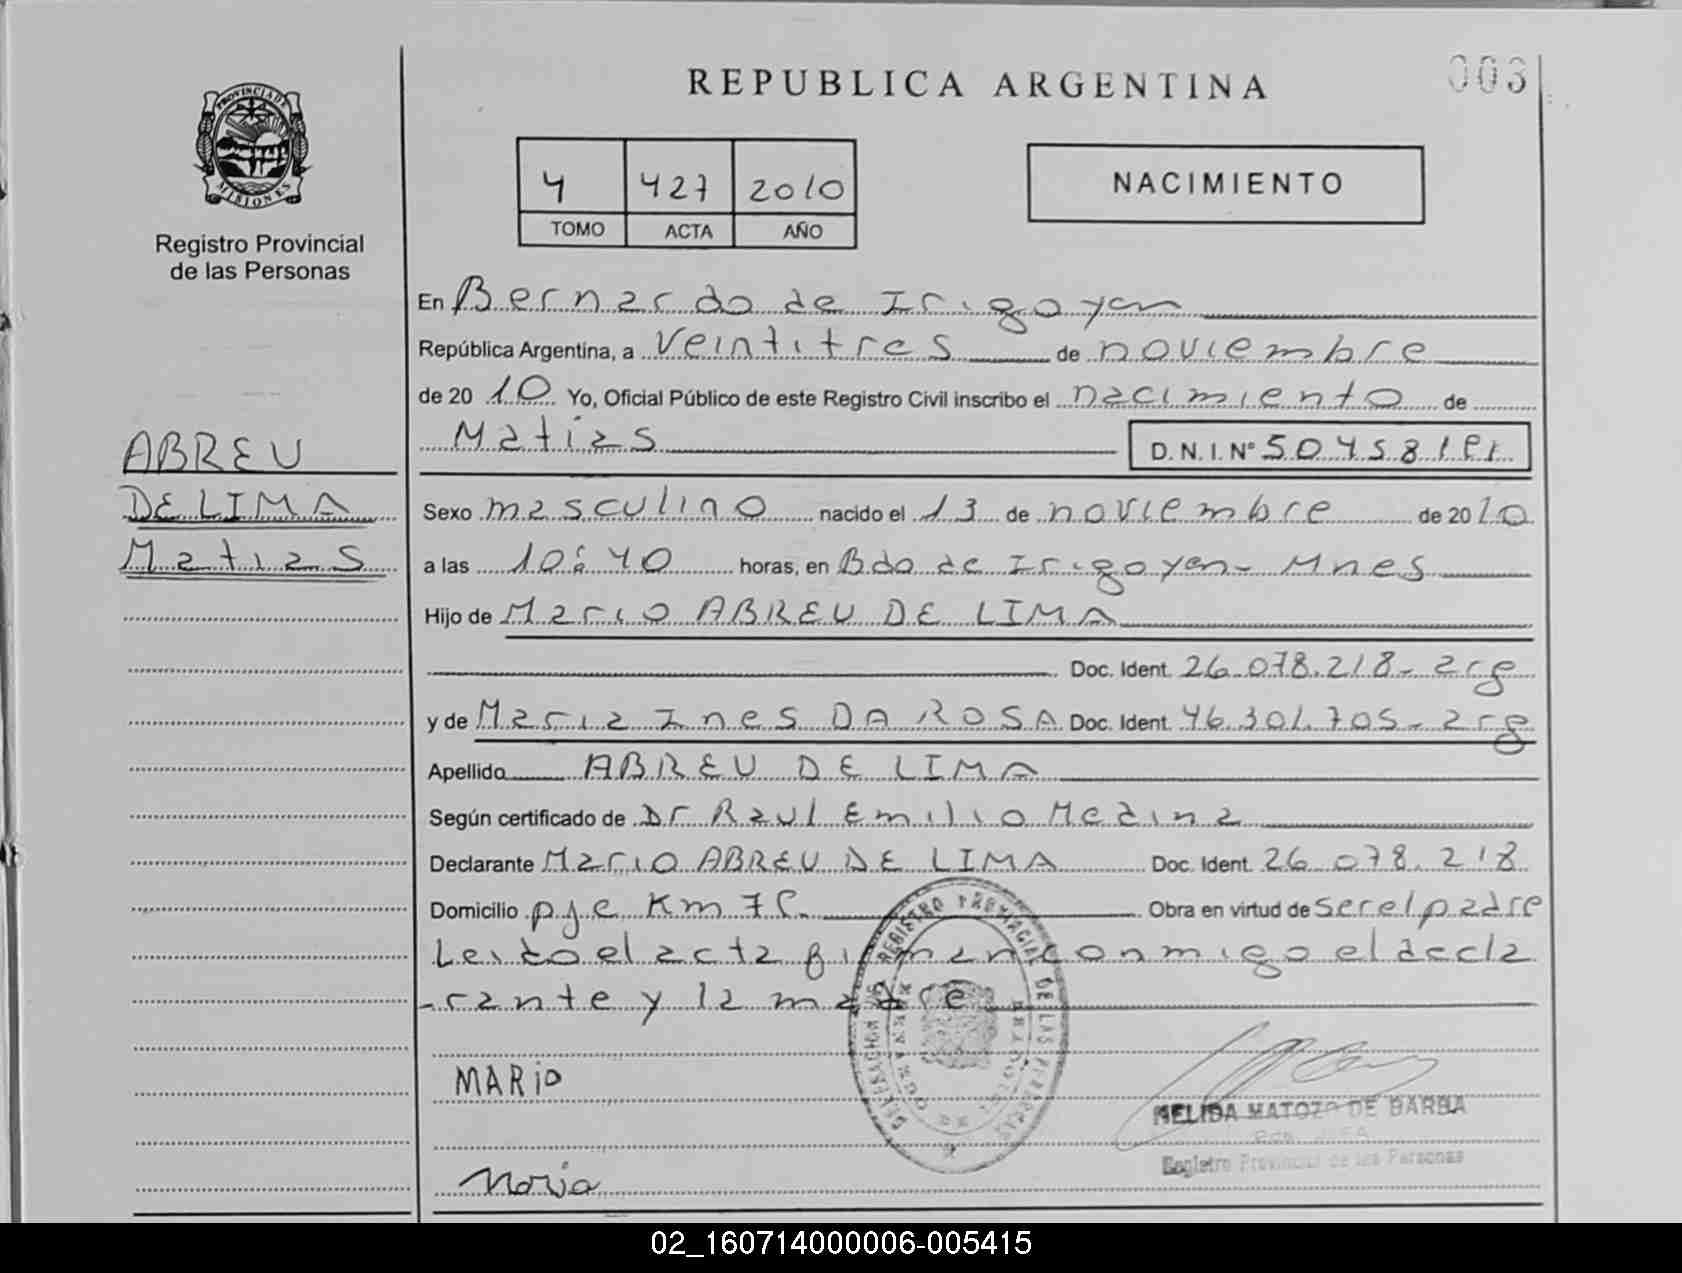 REPUBLICA ARGENTINA
003
PROVINCIA DE
MISIONES
Registro Provincial
de las Personas
4 427 2010
TOMO ACTA AÑO
NACIMIENTO
En Bernardo de Irigoyen
República Argentina, a veintitres de noviembre
de 2010 Yo, Oficial Público de este Registro Civil inscribo el nacimiento de
Matias D.N.I. Nº
ABREU
DE LIMA
Matias
Sexo masculino nacido el 13 de noviembre de 2010
a las 10:40 horas, en Bdo de Irigoyen - Mnes
Hijo de Mario ABREU DE LIMA
Doc. Ident. 26.078.218 - arg
y de Maria Ines DA ROSA Doc. Ident. 46.301.705 - arg
Apellido ABREU DE LIMA
Según certificado de Dr Raul Emilio Medina
Declarante Mario ABREU DE LIMA Doc. Ident. 26.078.218
Domicilio pje Km Obra en virtud de ser el padre
Leido el acta firman conmigo el decla
-rante y la madre
MARiO
Maria
REGISTRO PROVINCIAL DE LAS PERSONAS
NELIDA MATOZO DE BARBA
Registro Provincial de las Personas
02_160714000006-005415